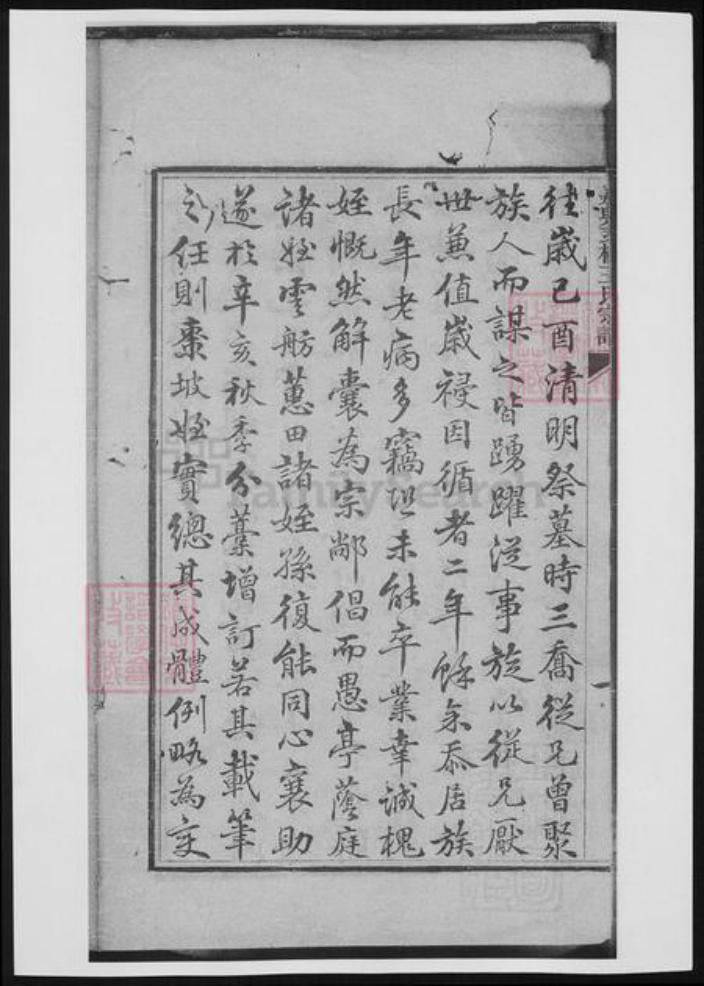 往歲己酉清明祭墓時三喬從兄曾聚
族人而謀之皆踴躍從事旋以從兄厭
世兼值歲祲因循者二年餘余忝居族
長年老病多竊恐未能卒業幸誠槐
姪慨然解囊為宗鄰倡而愚亭蔭庭
諸姪雲舫蕙田諸姪孫復能同心襄助
遂於辛亥秋季分藁增訂若其載筆
之任則棗坡姪實總其成體例略為變
王氏宗譜
FamilySearch